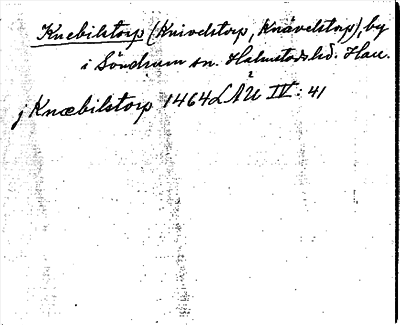 Knebilstorp (Knivelstorp, Knävelstorp), by
i Söndrum sn. Halmstads hd. Hall.
j Knæbilstorp 1464 LÄU IV: 41